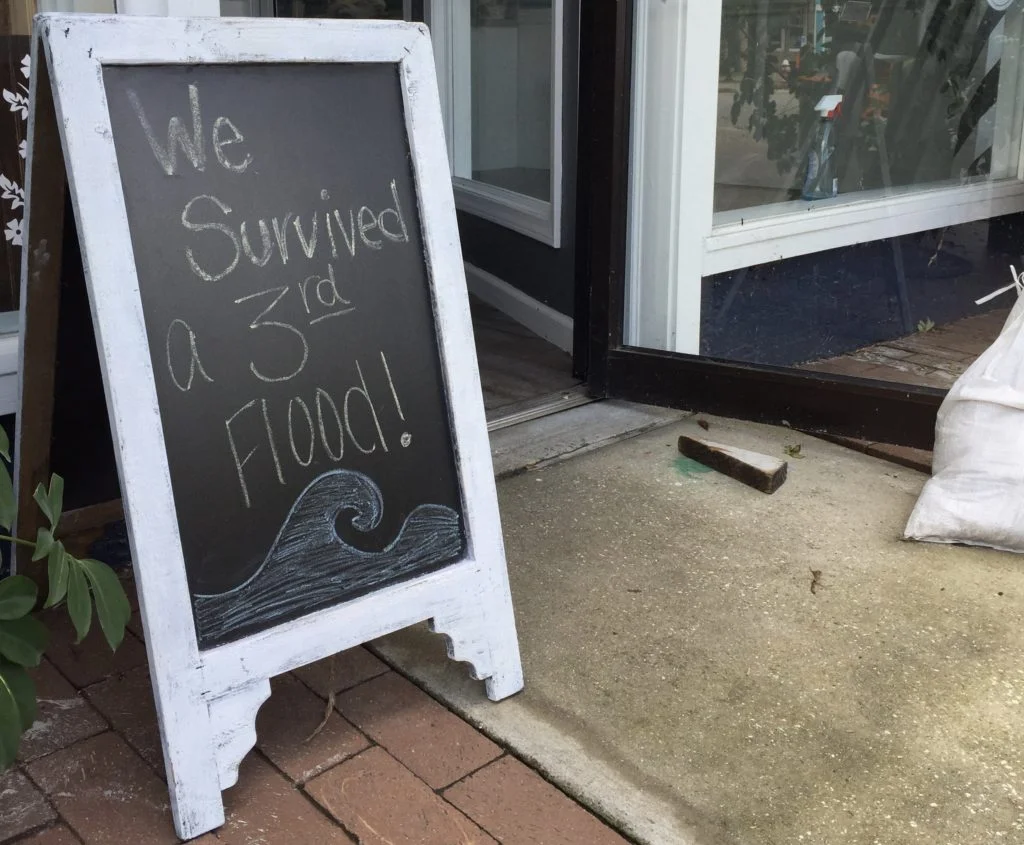 We
Survived
a 3rd
Flood!